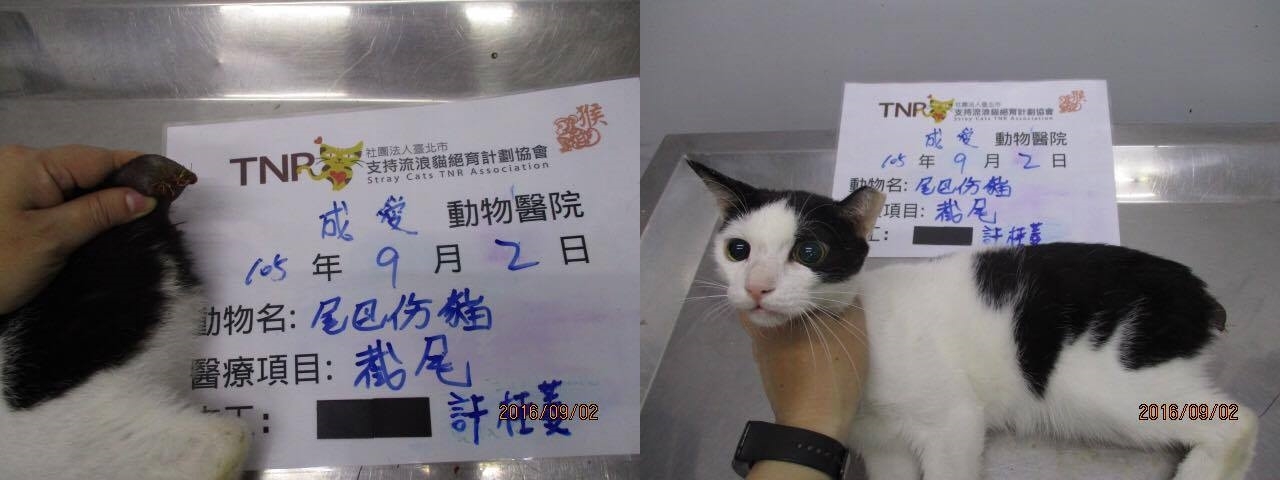 TNR
社團法人臺北市
支持流浪貓絕育計劃協會
Stray Cats TNR Association
猴
成愛 動物醫院
105 年 9 月 2 日
動物名: 尾巴傷貓
醫療項目: 截尾
工: 許
2016/09/02
TNR
社團法人臺北市
支持流浪貓絕育計劃協會
Stray Cats TNR Association
成愛 動物醫院
105 年 9 月 2 日
動物名: 尾巴傷貓
療項目: 截尾
工: 許
2016/09/02